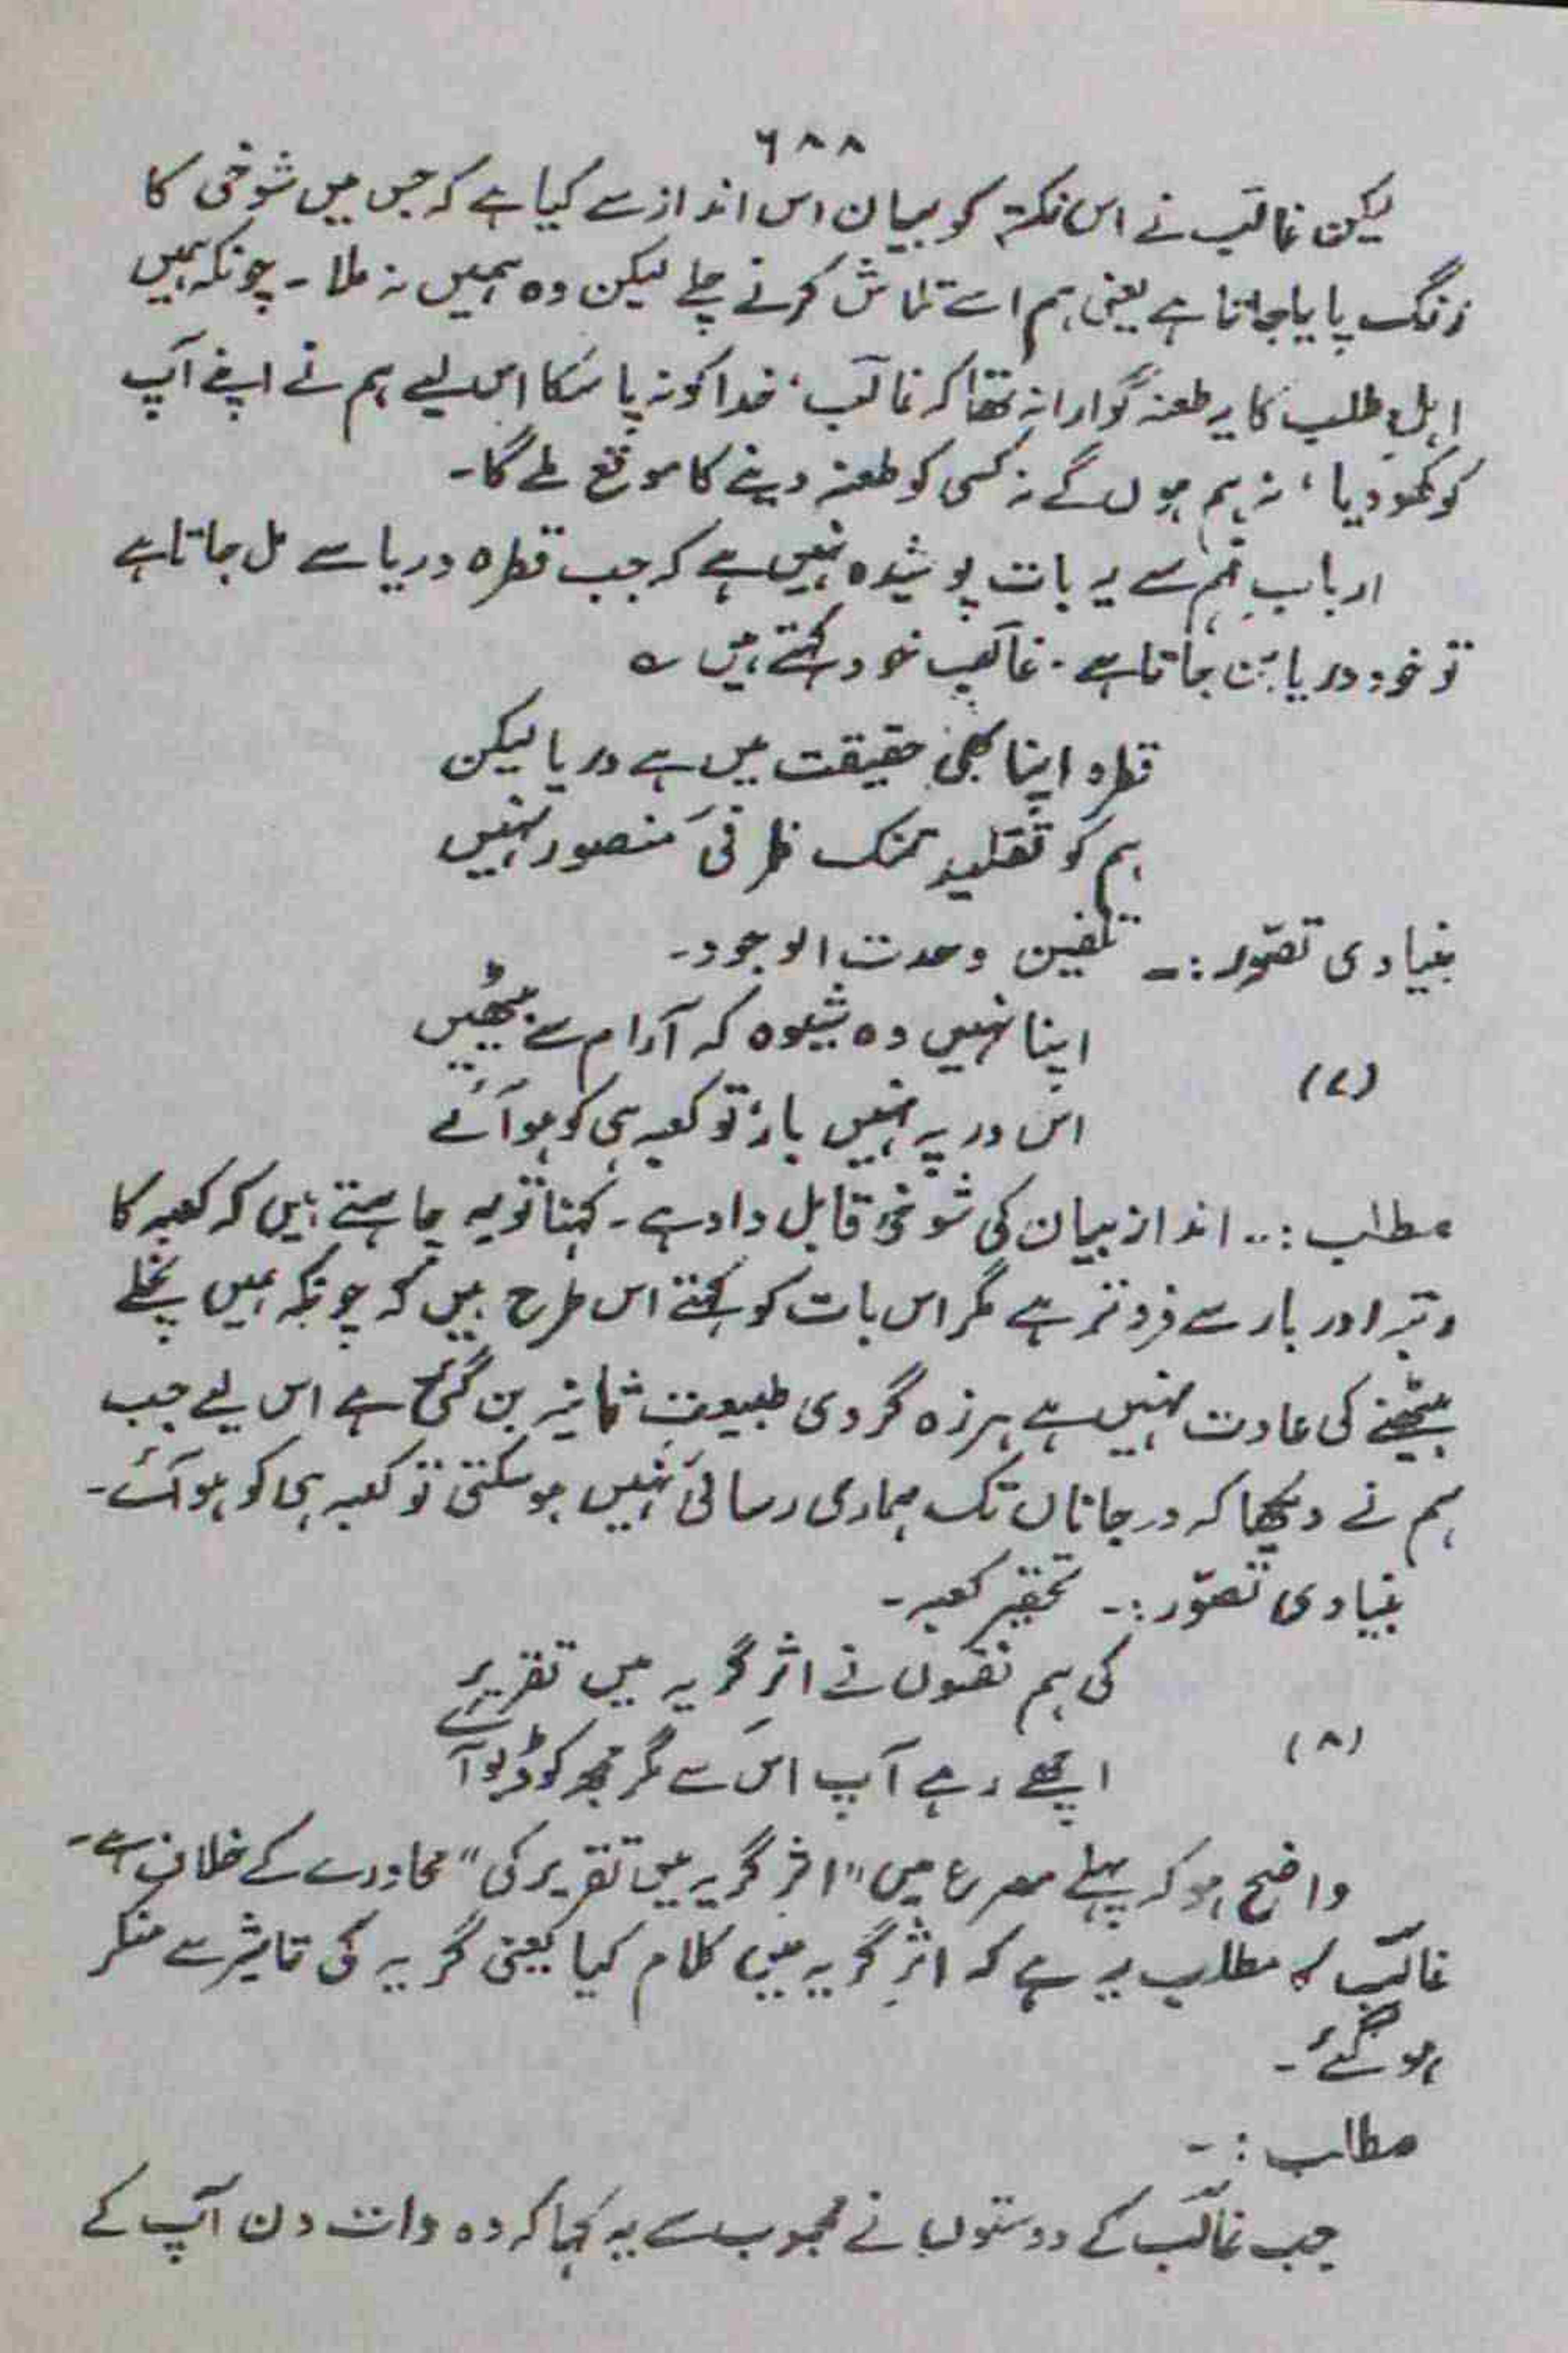 ٦٨٨
لیکن غالب نے اس نکتہ کو بیان اس انداز سے کیا ہے کہ جس میں شوخی کا
رنگ پایا جاتا ہے یعنی ہم اسے تلاش کرنے چلے لیکن وہ ہمیں نہ ملا ۔ چونکہ ہمیں
اہلِ طلب کا یہ طعنہ گوارا نہ تھا کہ غالب، خدا کو نہ پا سکا اس لیے ہم نے اپنے آپ
کو کھو دیا، نہ ہم ہوں گے نہ کسی کو طعنہ دینے کا موقع ملے گا۔
اربابِ فہم سے یہ بات پوشیدہ نہیں ہے کہ جب قطرہ دریا سے مل جاتا ہے
تو خود دریا بن جاتا ہے ۔ غالب خود کہتے ہیں ؎
قطرہ اپنا بھی حقیقت میں ہے دریا لیکن
ہم کو تقلید تنک ظرفیٔ منصور نہیں
بنیادی تصوّر :۔ تلقین وحدت الوجود۔
اپنا نہیں وہ شیوہ کہ آرام سے بیٹھیں
(۷)
اس در پہ نہیں بار تو کعبہ ہی کو ہو آئے
مطلب :۔ انداز بیان کی شوخی قابل داد ہے ۔ کہنا تو یہ چاہتے ہیں کہ کعبہ کا
رتبہ اور بار سے فروتر ہے مگر اس بات کو کہتے اس طرح ہیں کہ چونکہ ہمیں نچلے
بیٹھنے کی عادت نہیں ہے ہرزہ گردی طبیعت ثانیہ بن گئی ہے اس لیے جب
ہم نے دیکھا کہ در جاناں تک ہماری رسائی نہیں ہو سکتی تو کعبہ ہی کو ہو آئے۔
بنیادی تصوّر :۔ تحقیر کعبہ ۔
کی ہم نفسوں نے اثرِ گریہ میں تقریر
(۸)
اچھے رہے آپ اس سے مگر مجھ کو ڈبو آئے
واضح ہو کہ پہلے مصرع میں "اثر گریہ میں تقریر کی" محاورے کے خلاف ہے۔
غالب کا مطلب یہ ہے کہ اثرِ گریہ میں کلام کیا یعنی گریہ کی تاثیر سے منکر
ہو گئے ۔
مطلب :۔
جب غالب کے دوستوں نے محبوب سے یہ کہا کہ وہ رات دن آپ کے